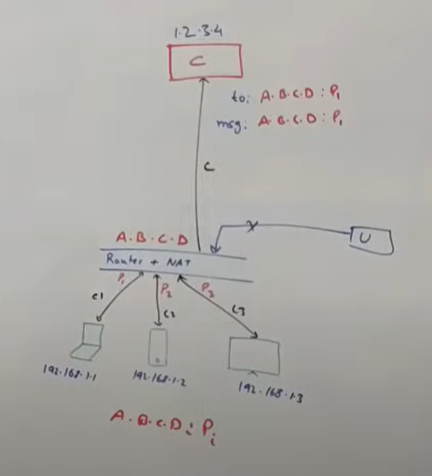 1.2.3.4
C
to: A.B.C.D : P1
msg: A.B.C.D : P1
C
A.B.C.D
X
U
Router + NAT
P1
P2
P3
C1
C2
C3
192.168.1.1
192.168.1.2
192.168.1.3
A.B.C.D : Pi